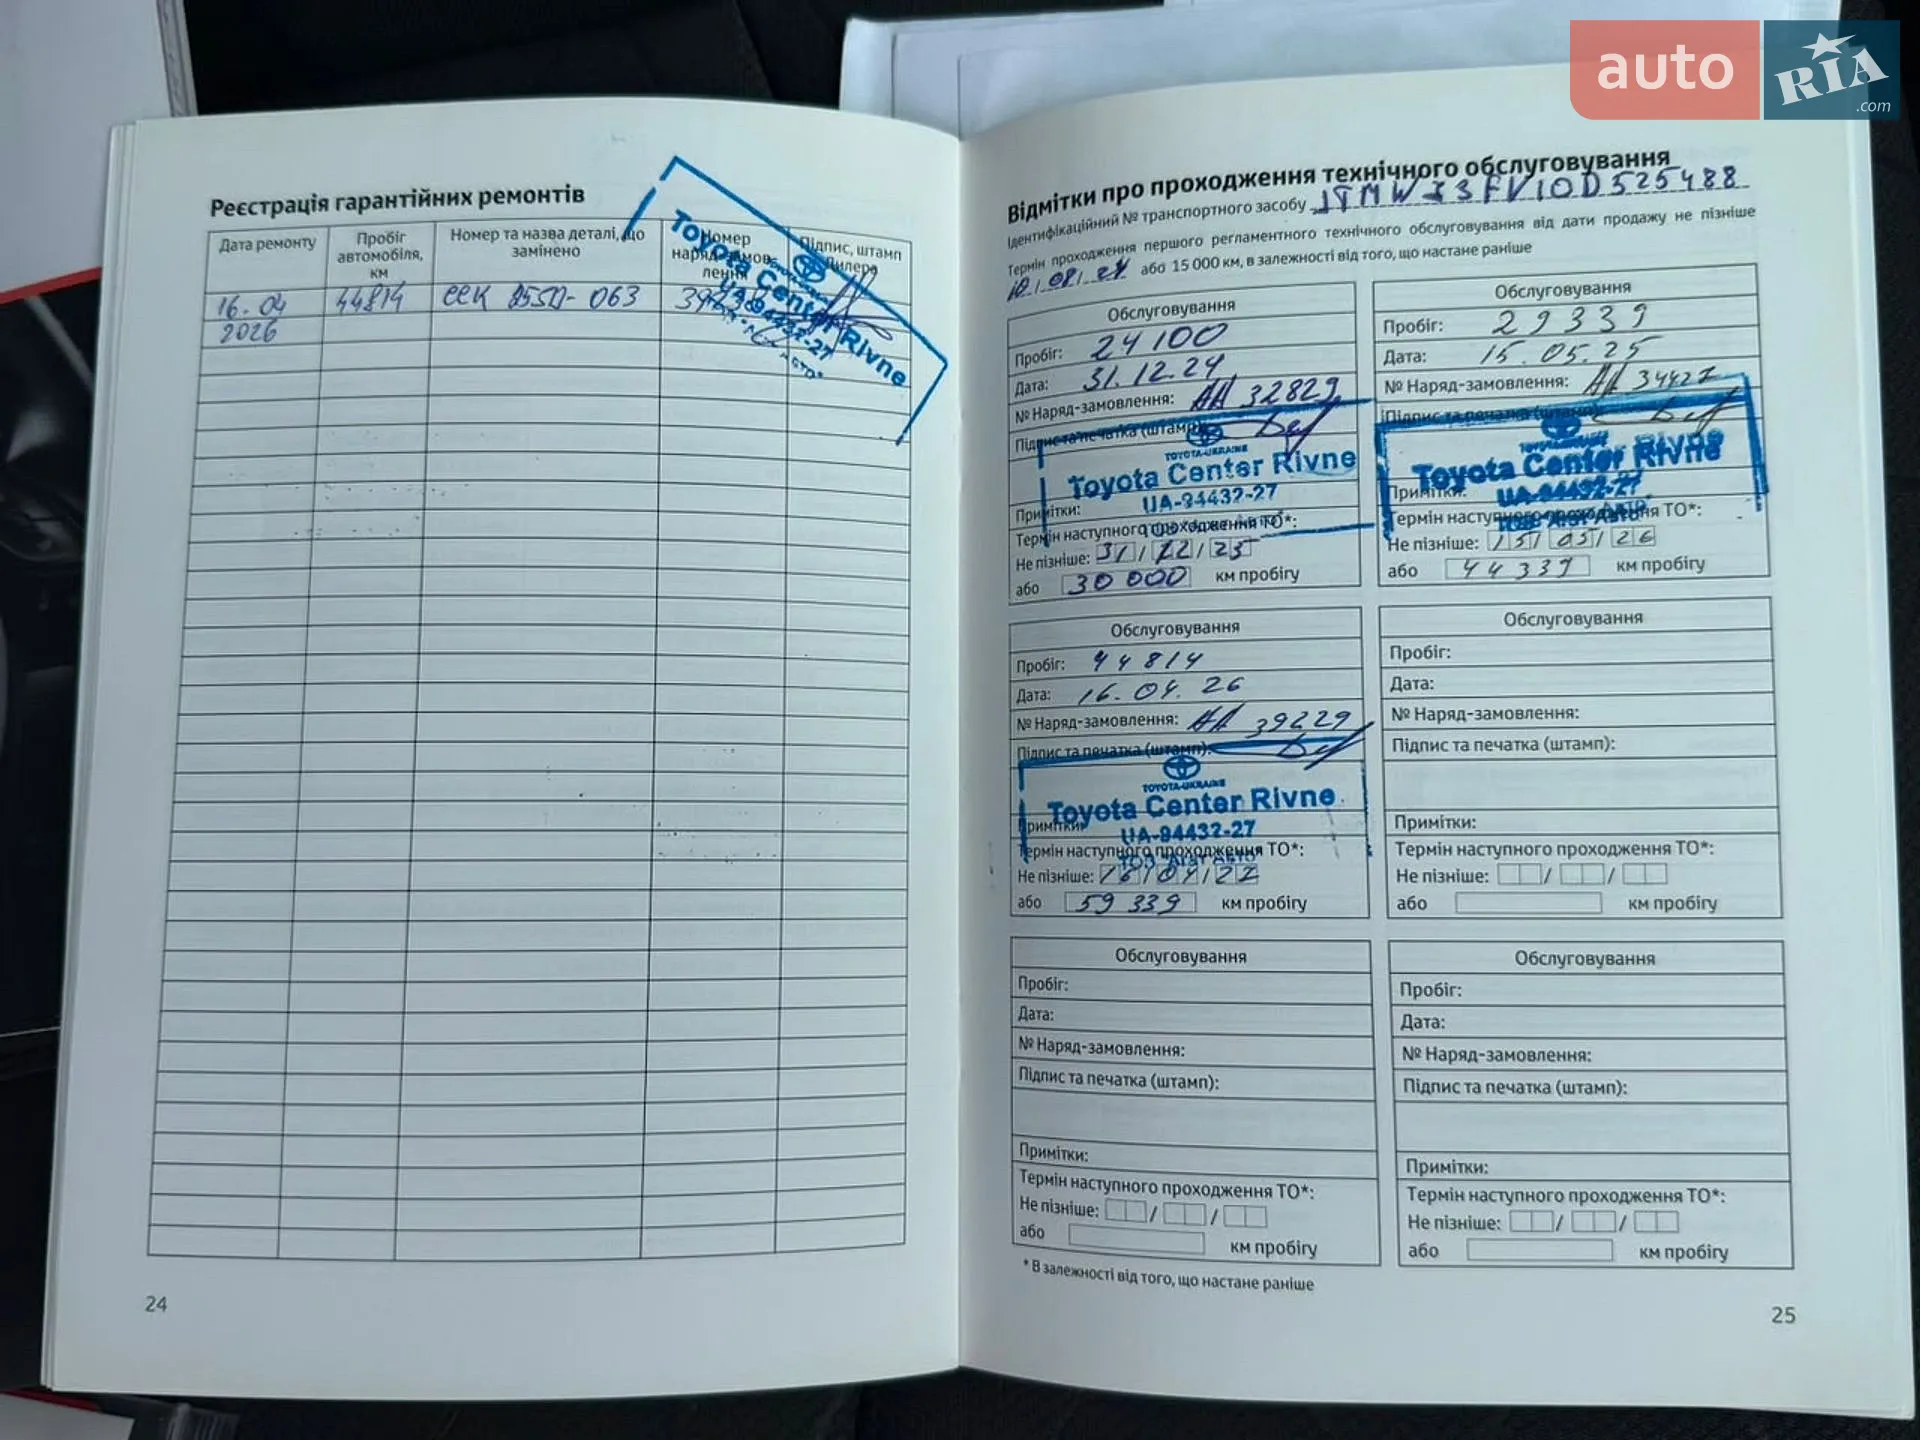 auto RIA .com
Реєстрація гарантійних ремонтів
Дата ремонту
Пробіг автомобіля, км
Номер та назва деталі, що замінено
Номер наряд-замовлення
Підпис, штамп Дилера
16.04 2026
44814
8550-063
Toyota Center Rivne
UA-94432-27
24
Відмітки про проходження технічного обслуговування
Ідентифікаційний № транспортного засобу
Термін проходження першого регламентного технічного обслуговування від дати продажу не пізніше
або 15 000 км, в залежності від того, що настане раніше
Обслуговування
Пробіг: 24100
Дата: 31.12.24
№ Наряд-замовлення: АА 32829
Підпис та печатка (штамп):
TOYOTA-UKRAINE
Toyota Center Rivne
UA-94432-27
Примітки:
Термін наступного проходження ТО*:
Не пізніше: 31/12/25
або 30 000 км пробігу
Обслуговування
Пробіг: 29339
Дата: 15.05.25
№ Наряд-замовлення: АА 34427
Підпис та печатка (штамп):
Toyota Center Rivne
UA-94432-27
Примітки:
Термін наступного проходження ТО*:
Не пізніше: 15/05/26
або 44339 км пробігу
Обслуговування
Пробіг: 44814
Дата: 16.04.26
№ Наряд-замовлення: АА 39229
Підпис та печатка (штамп):
TOYOTA-UKRAINE
Toyota Center Rivne
UA-94432-27
Примітки:
Термін наступного проходження ТО*:
Не пізніше: 16/04/27
або 59 339 км пробігу
Обслуговування
Пробіг:
Дата:
№ Наряд-замовлення:
Підпис та печатка (штамп):
Примітки:
Термін наступного проходження ТО*:
Не пізніше: / /
або км пробігу
Обслуговування
Пробіг:
Дата:
№ Наряд-замовлення:
Підпис та печатка (штамп):
Примітки:
Термін наступного проходження ТО*:
Не пізніше: / /
або км пробігу
Обслуговування
Пробіг:
Дата:
№ Наряд-замовлення:
Підпис та печатка (штамп):
Примітки:
Термін наступного проходження ТО*:
Не пізніше: / /
або км пробігу
* В залежності від того, що настане раніше
25